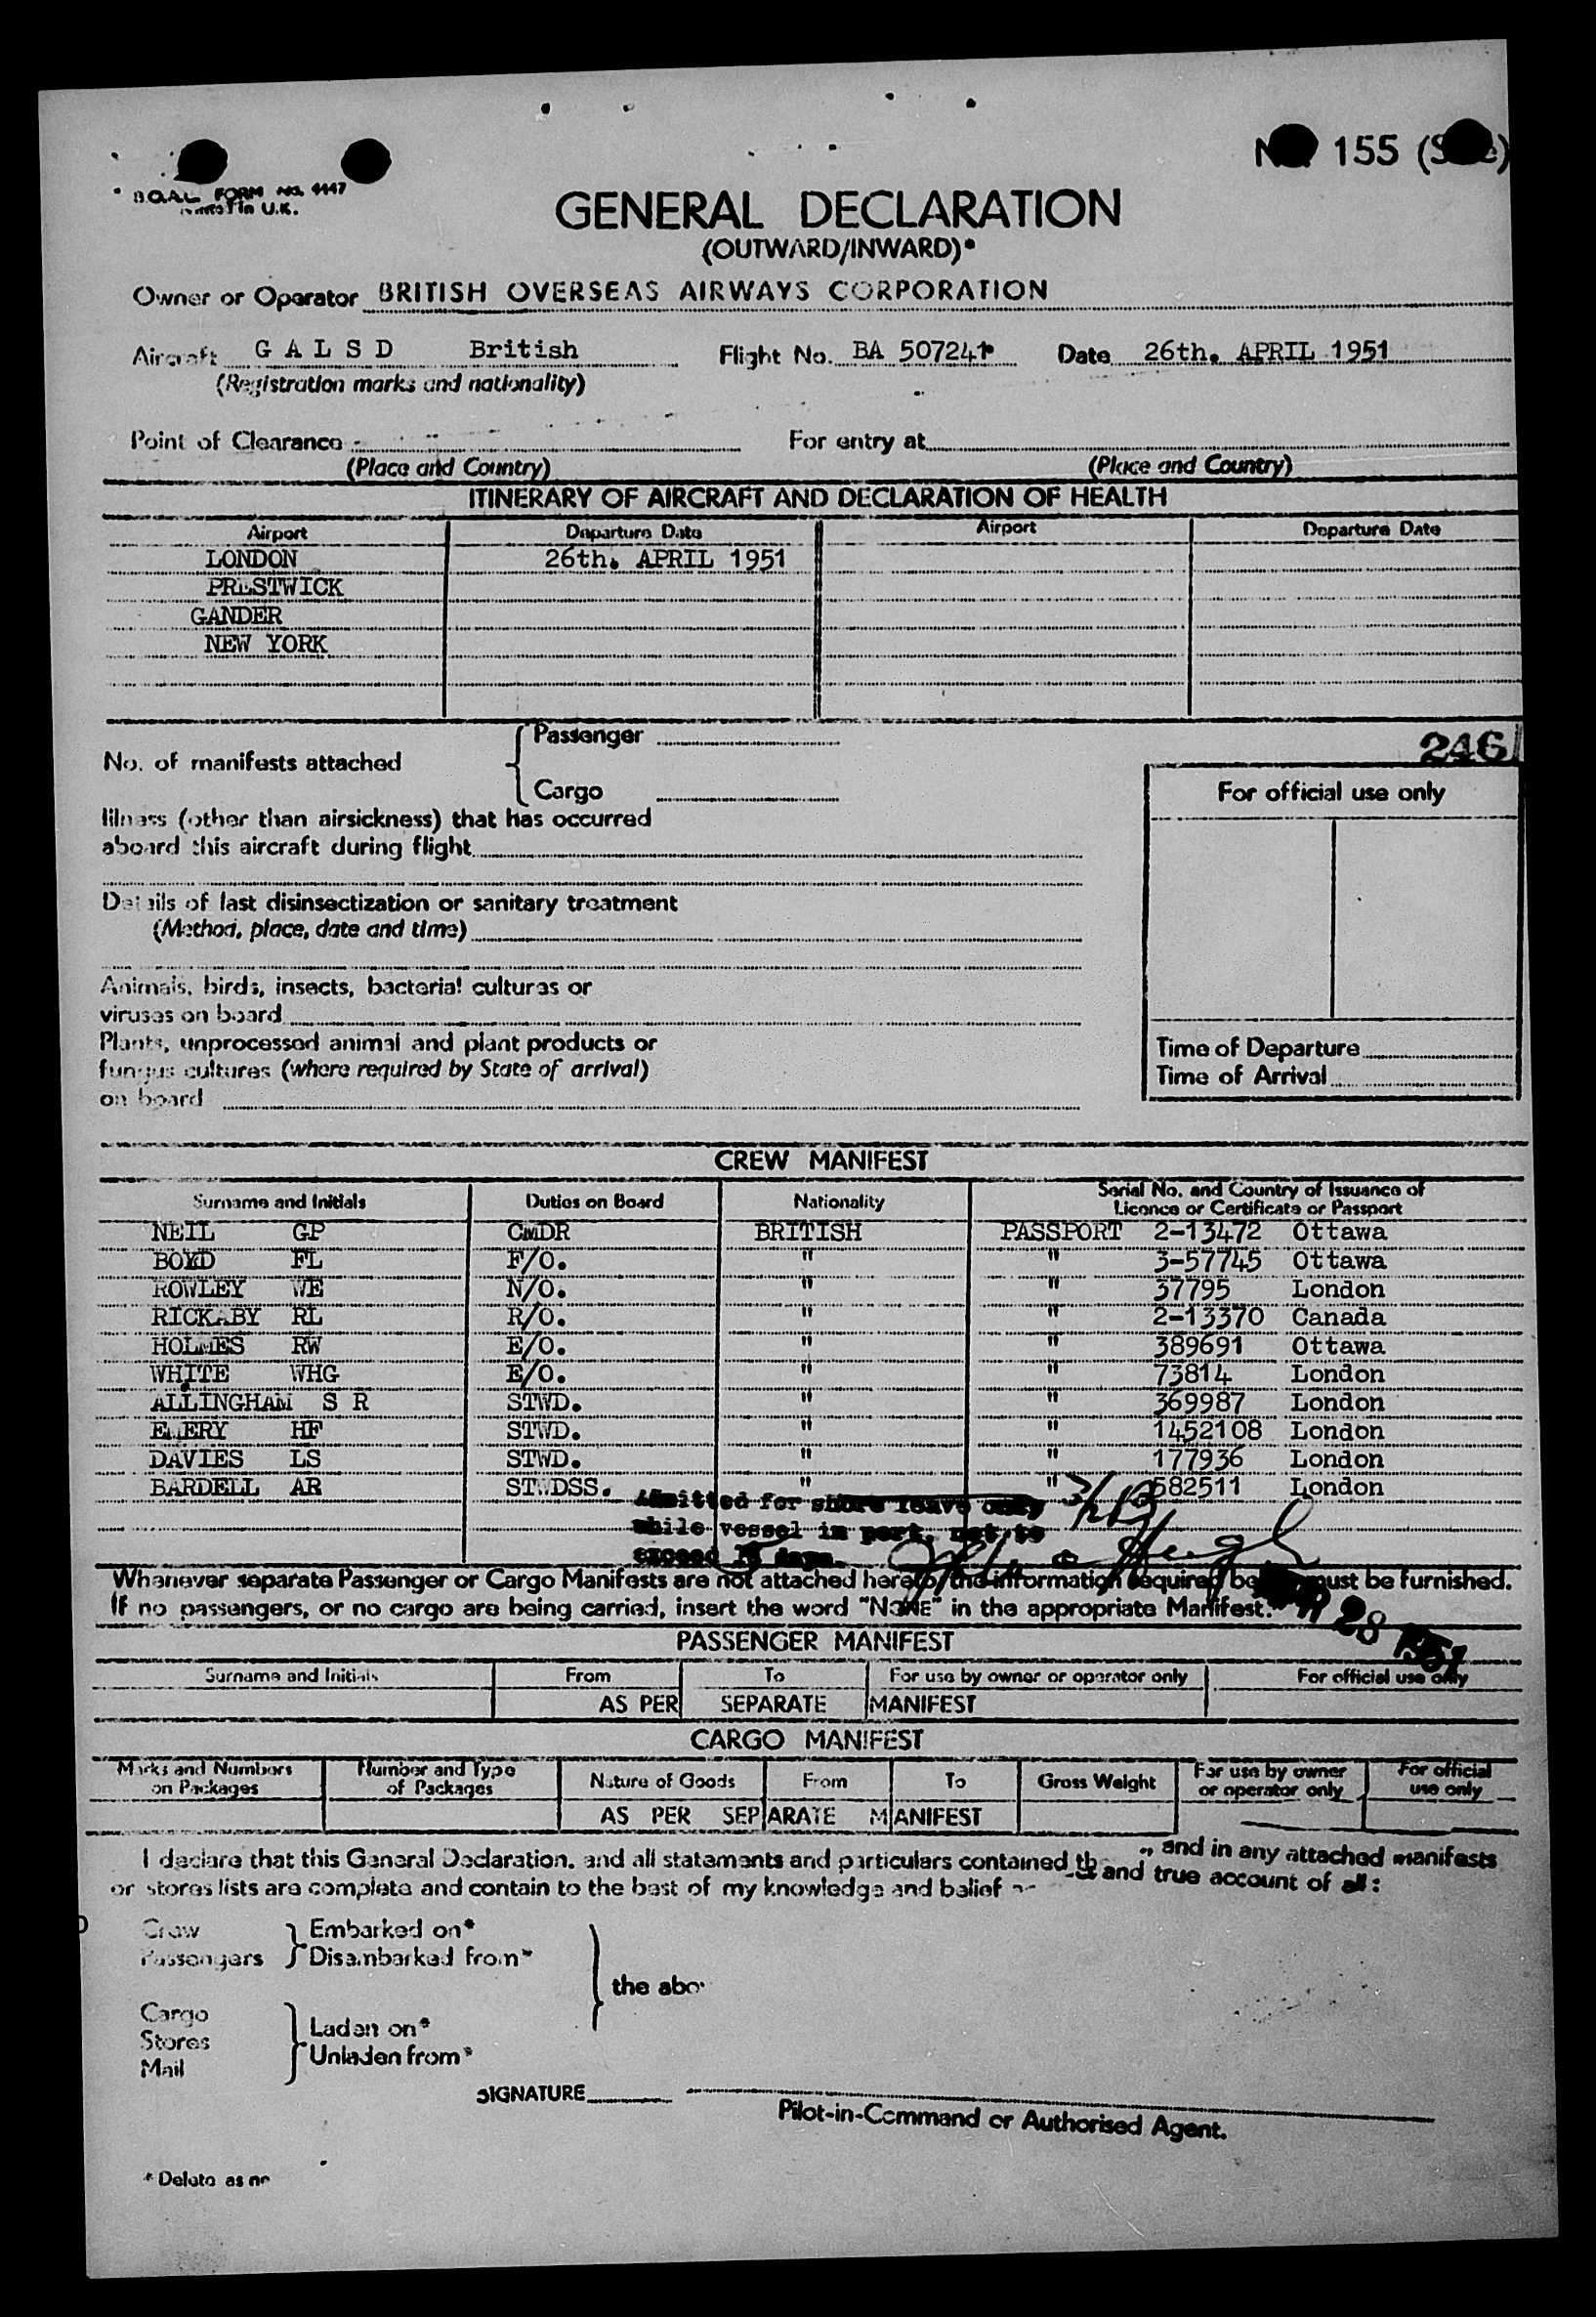 155
B.O.A.C. FORM No. 4447
Printed in U.K.
GENERAL DECLARATION
(OUTWARD/INWARD)*
Owner or Operator BRITISH OVERSEAS AIRWAYS CORPORATION
Aircraft G A L S D British Flight No. BA 507241 Date 26th. APRIL 1951
(Registration marks and nationality)
Point of Clearance For entry at
(Place and Country) (Place and Country)
ITINERARY OF AIRCRAFT AND DECLARATION OF HEALTH
Airport Departure Date Airport Departure Date
LONDON 26th. APRIL 1951
PRESTWICK
GANDER
NEW YORK
Passenger
246
No. of manifests attached
Cargo
For official use only
Illness (other than airsickness) that has occurred
aboard this aircraft during flight
Details of last disinsectization or sanitary treatment
(Method, place, date and time)
Animals, birds, insects, bacterial cultures or
viruses on board
Plants, unprocessed animal and plant products or
fungus cultures (where required by State of arrival)
on board
Time of Departure
Time of Arrival
CREW MANIFEST
Surname and Initials Duties on Board Nationality Serial No. and Country of Issuance of
Licence or Certificate or Passport
NEIL GP CMDR BRITISH PASSPORT 2-13472 Ottawa
BOYD FL F/O. " " 3-57745 Ottawa
ROWLEY WE N/O. " " 37795 London
RICKABY RL R/O. " " 2-13370 Canada
HOLMES RW E/O. " " 389691 Ottawa
WHITE WHG E/O. " " 73814 London
ALLINGHAM S R STWD. " " 369987 London
EMERY HF STWD. " " 1452108 London
DAVIES LS STWD. " " 177936 London
BARDELL AR STWDSS. " " 582511 London
Admitted for shore leave only
while vessel in port, not to
exceed days.
Whenever separate Passenger or Cargo Manifests are not attached hereto, the information required below must be furnished.
If no passengers, or no cargo are being carried, insert the word "NONE" in the appropriate Manifest.
28 1951
PASSENGER MANIFEST
Surname and Initials From To For use by owner or operator only For official use only
AS PER SEPARATE MANIFEST
CARGO MANIFEST
Marks and Numbers on Packages Number and Type of Packages Nature of Goods From To Gross Weight For use by owner or operator only For official use only
AS PER SEPARATE MANIFEST
I declare that this General Declaration, and all statements and particulars contained and in any attached manifests
or stores lists are complete and contain to the best of my knowledge and belief and true account of all:
Crew Embarked on*
Passengers Disembarked from*
the abo
Cargo
Laden on*
Stores
Unladen from*
Mail
SIGNATURE
Pilot-in-Command or Authorised Agent.
* Delete as